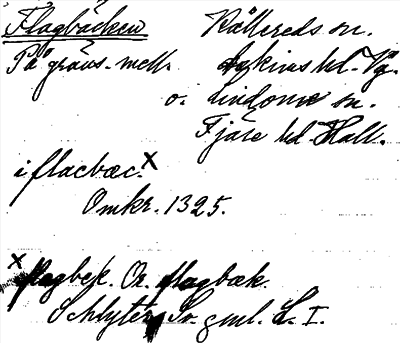 Flagbäcken Kållereds sn.
På gräns. mell. Askims hd. Vg.
o. Lindome sn.
Fjäre hd Hall.
i flacbæc. x
Omkr. 1325.
x flagbek. Or. flagbæk.
Schlyter, Sv. gml. L. I.